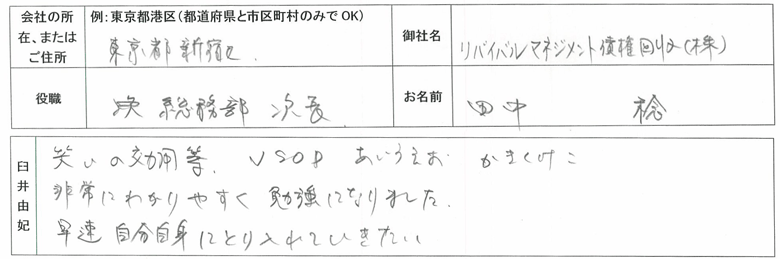 会社の所在、またはご住所
例：東京都港区（都道府県と市区町村のみでOK）
東京都新宿区
御社名
リバイバルマネジメント債権回収（株）
役職
総務部 次長
お名前
田中
臼井由妃
笑いの効用等、VSOP あいうえお かきくけこ
非常にわかりやすく勉強になりました。
早速自分自身にとり入れていきたい